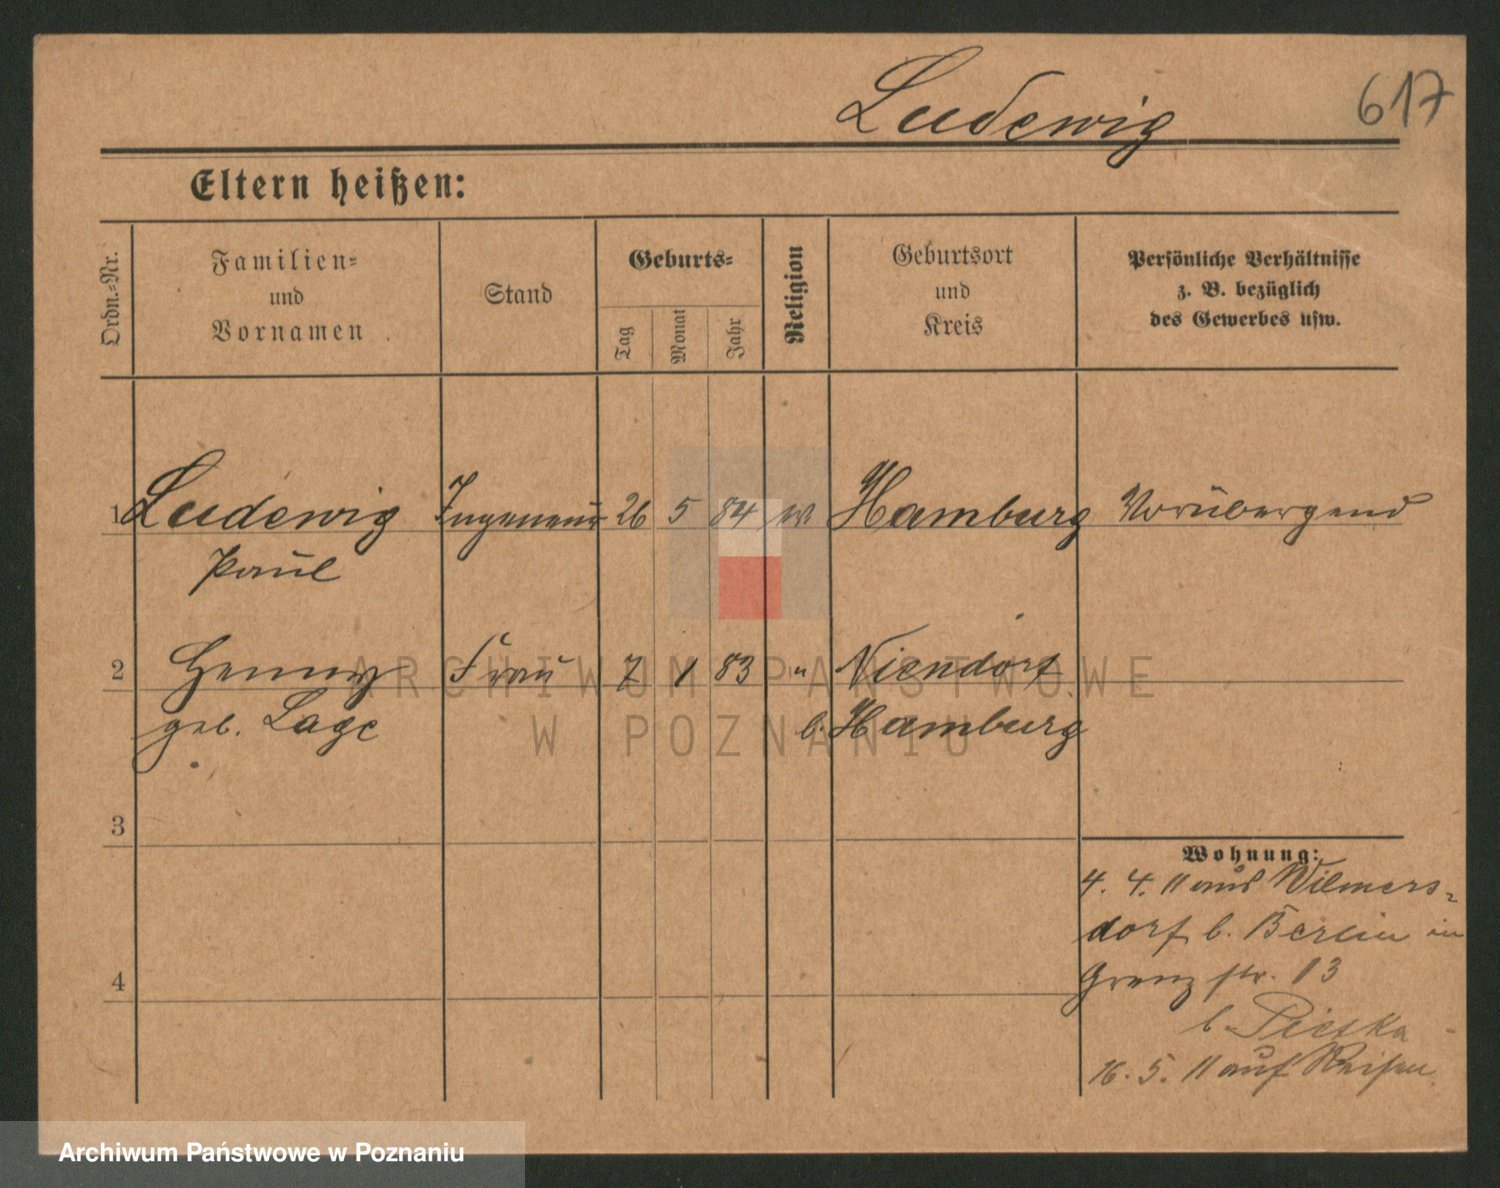 Ludewig
617
Eltern heißen:
Ordn.-Nr.
Familien-
und
Vornamen
Stand
Geburts-
Tag
Monat
Jahr
Religion
Geburtsort
und
Kreis
Persönliche Verhältnisse
z. B. bezüglich
des Gewerbes usw.
1 Ludewig Ingeneur 26 5 84 ev Hamburg Vorübergend
Paul
2 Henny Frau 7 1 83 " Niendorf
geb. Lage b. Hamburg
3
Wohnung:
4. 4. 11 aus Wilmers-
dorf b. Berlin in
Grenzstr. 13
4
b. Pietka
16. 5. 11 auf Reisen
ARCHIWUM PAŃSTWOWE
W POZNANIU
Archiwum Państwowe w Poznaniu